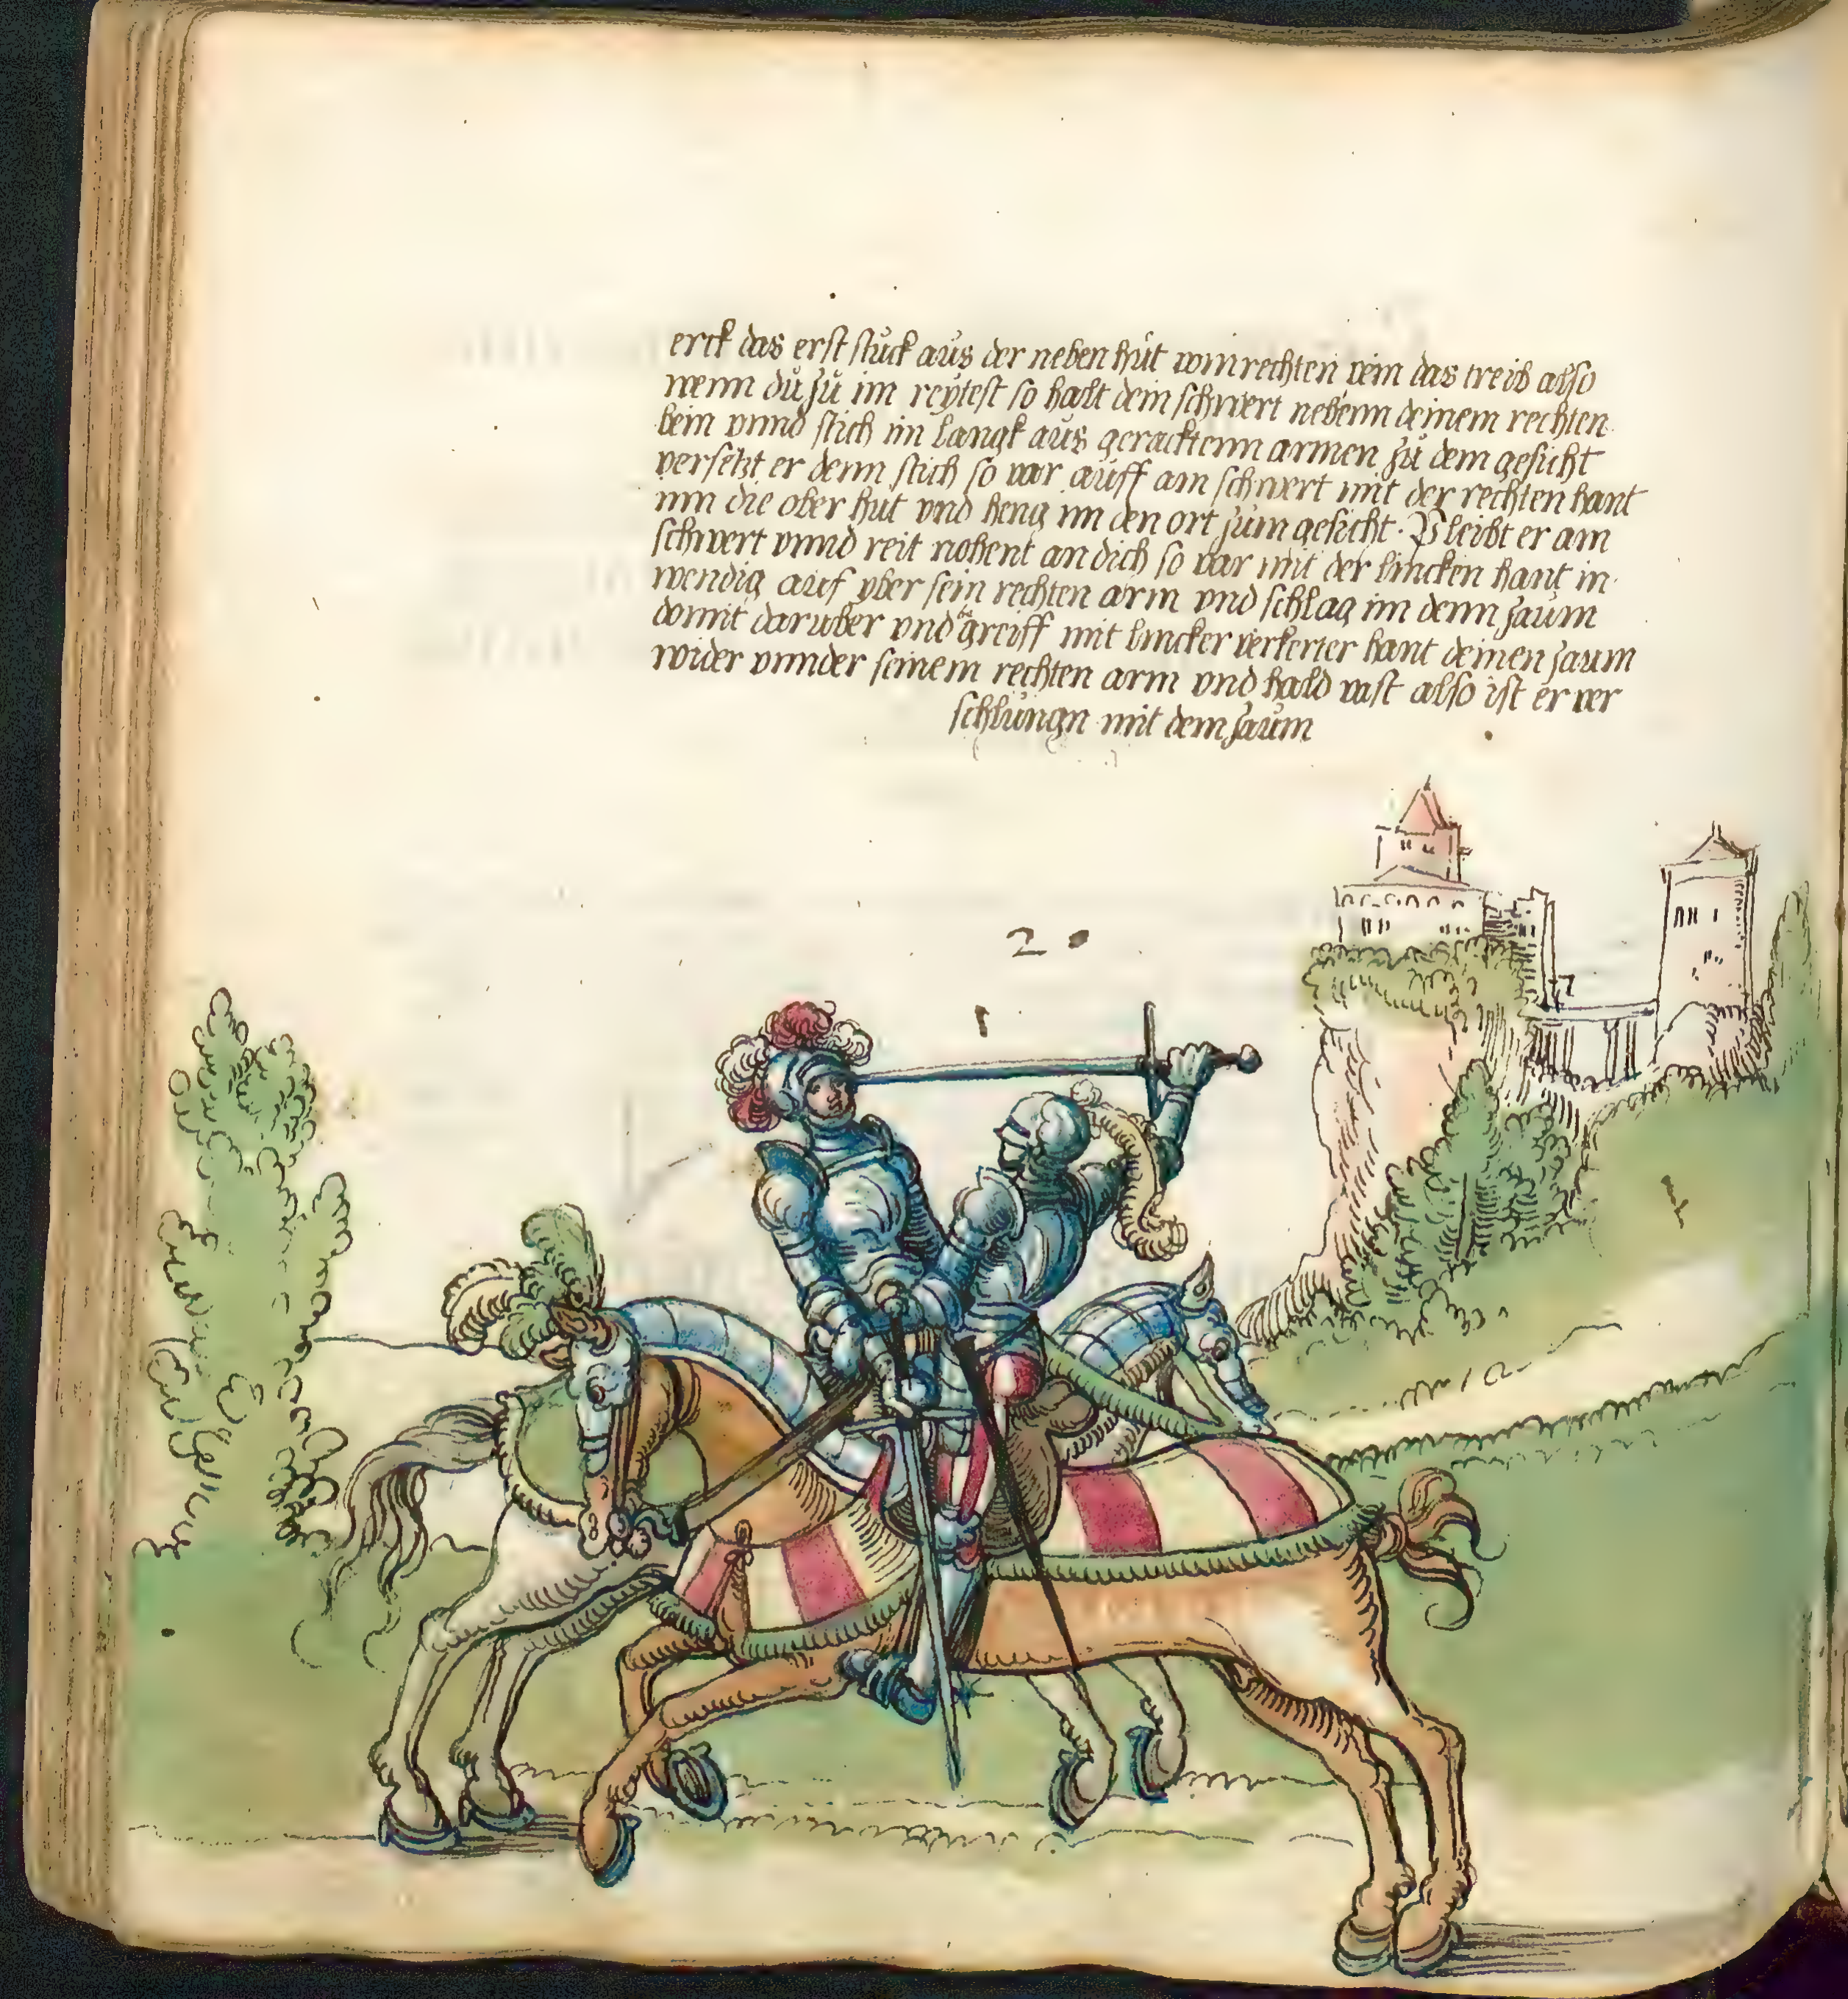 erck das erst stuck aus der neben hůt vom rechten pein das treib also
wenn dů zů im reÿtest so halt dein schwert nebenn deinem rechten
bein vnnd stich im langk aus gerackttenn armen zů dem gesicht
versetzt er denn stich so var aůff am schwert mit der rechten hant
inn die ober hůt vnd heng im den ort zům gesicht. Pleibt er am
schwert vnnd reit nohent an dich so var mit der lincken hant in
wendig auf vber sein rechten arm vnd schlag im denn zaům
domit daruber vnd greiff mit lincker verkerter hant deinen zaum
wider vnnder seinem rechten arm vnd hald vast also ist er ver
schlůngn mit dem zaům
20
1